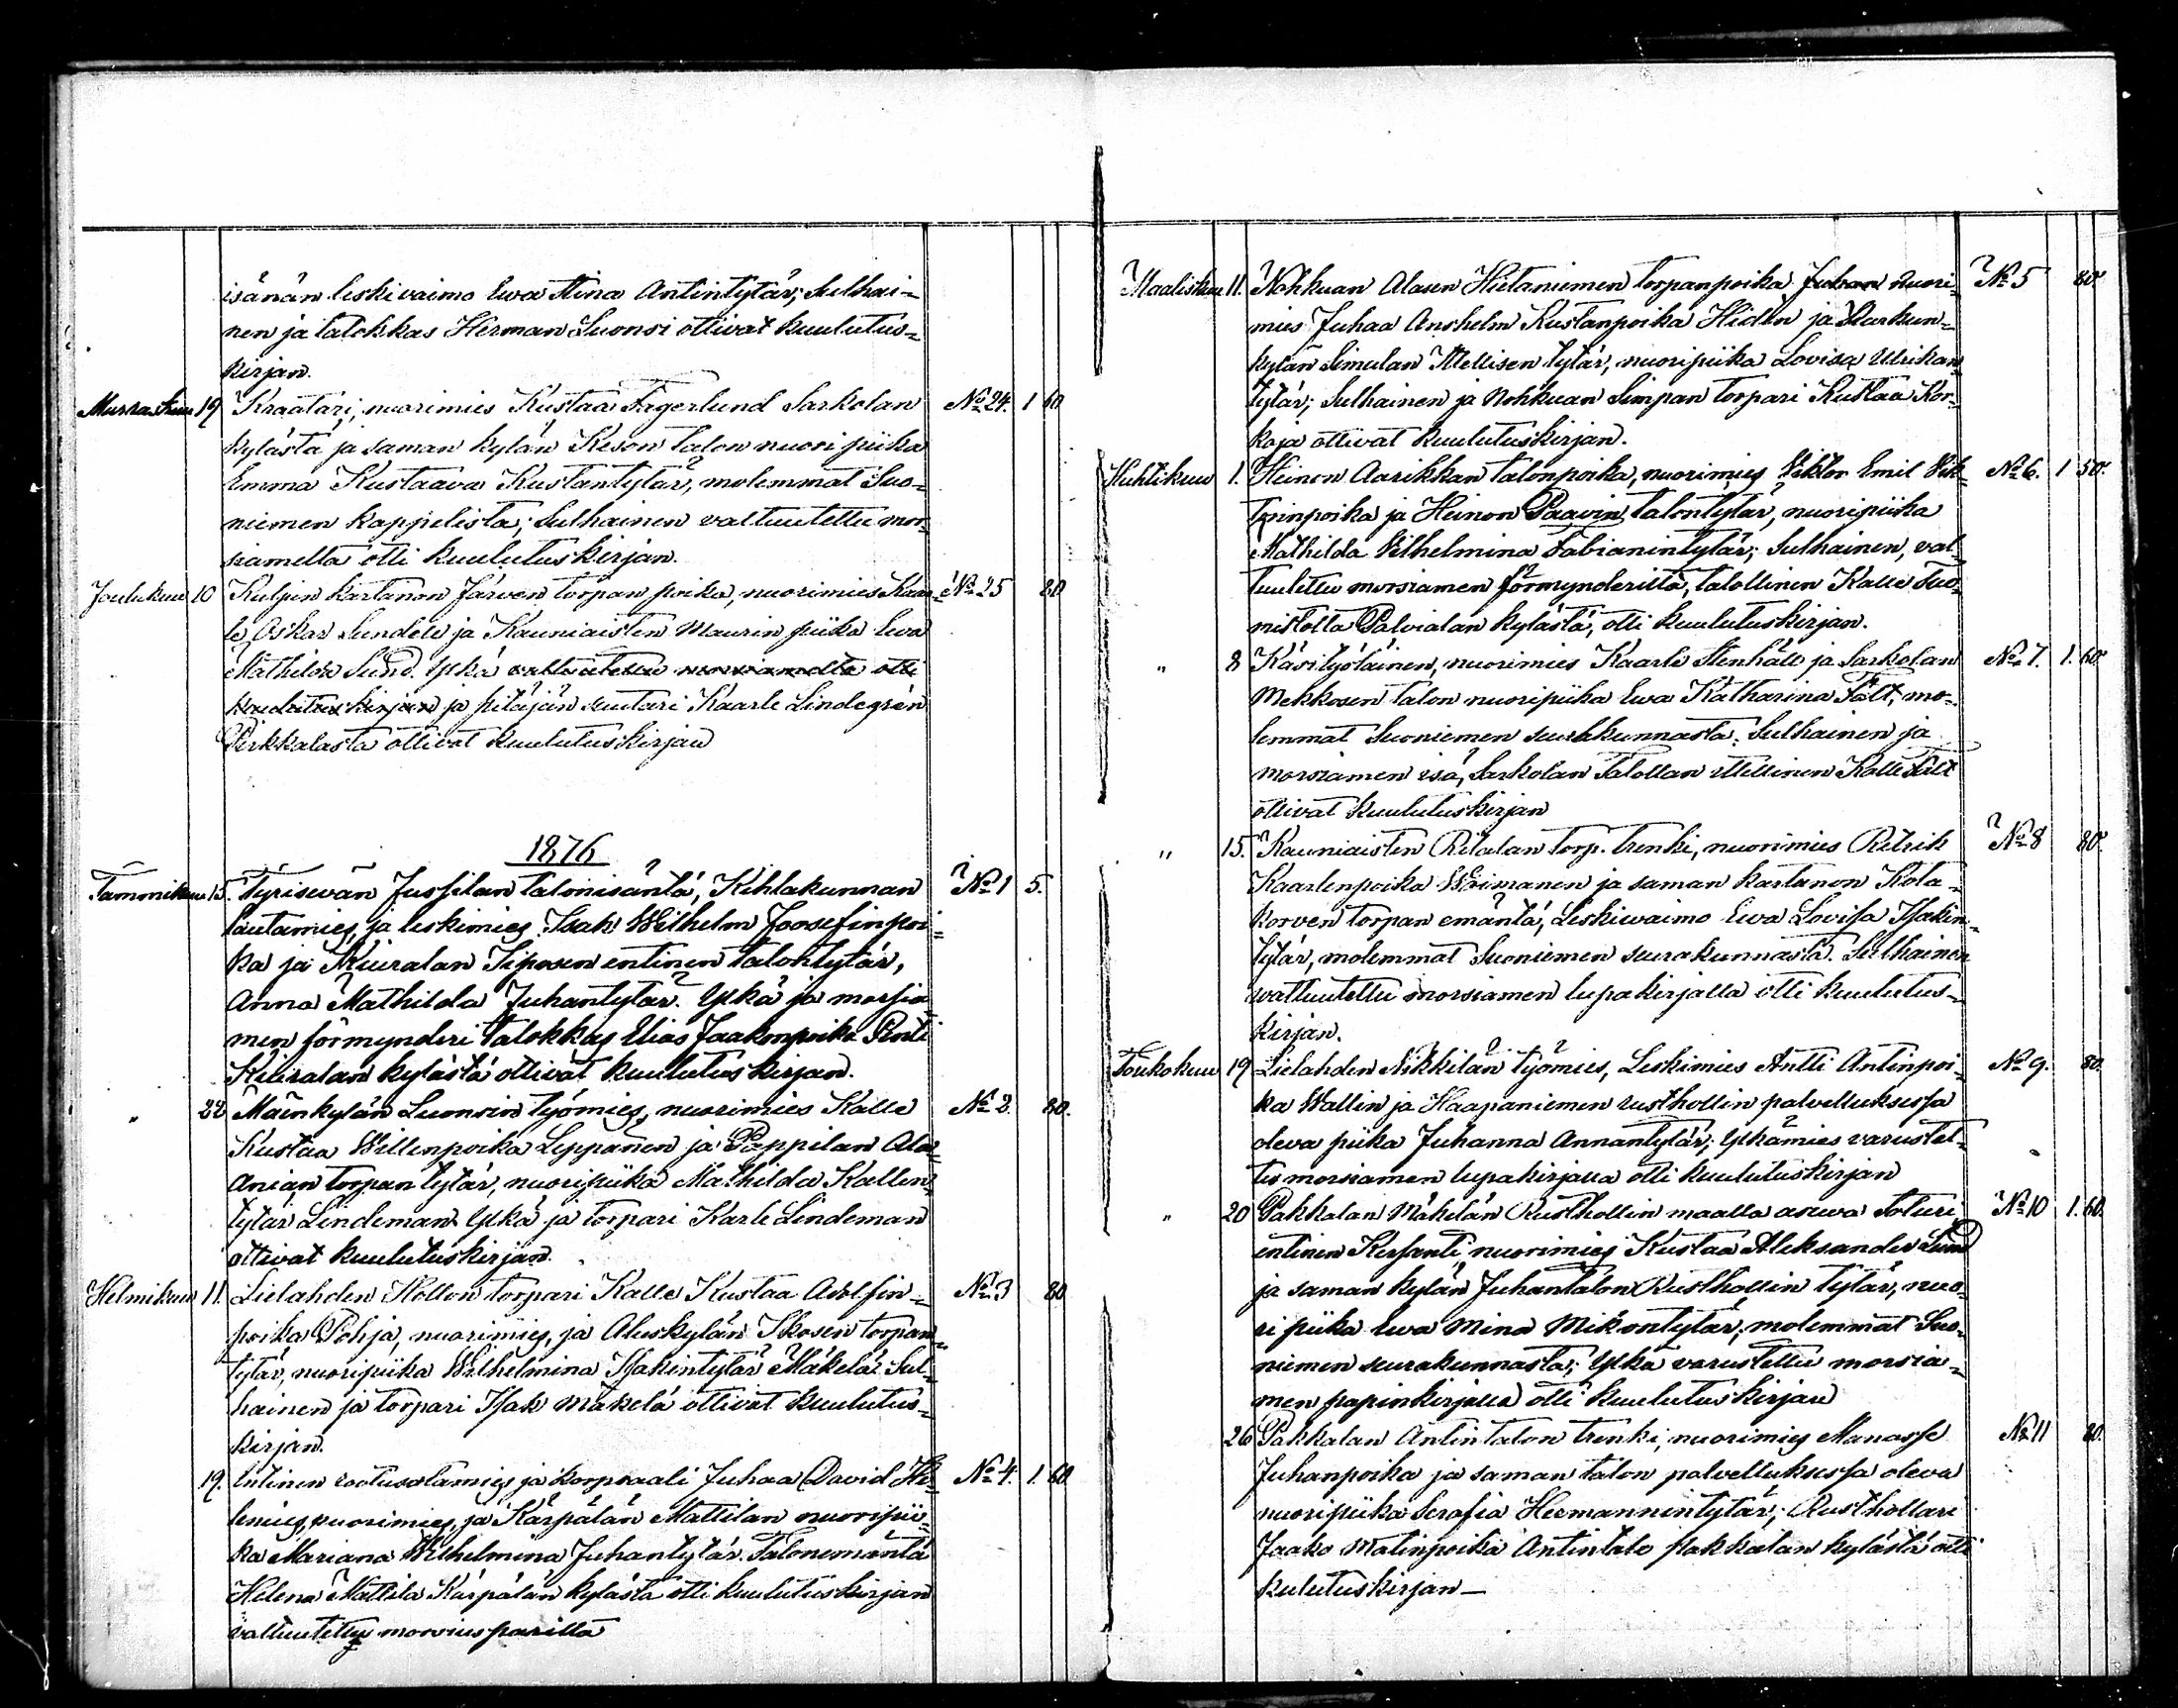 isänän leskivaimo Ewa Stina Antintytär; Sulhai-
nen ja talokkas Herman Luonsi ottivat kuulutus-
kirjan.
Marraskuu 19 Kraatari, nuorimies Kustaa Fagerlund Sarkolan No 24. 1 60
kylästä ja saman kylän Keson talon nuori piika
Emma Kustaava Kustantytär, molemmat Suo-
niemen kappelista; Sulhainen valtuutettu mor-
siamelta otti kuulutuskirjan.
Joulukuu 10 Kuljun kartanon Järven torpan poika, nuorimies Kaar- No 25 80
le Oskar Sundele ja Kauniaisten Maurin piika Ewa
Mathilda Sund. Ylkä valtuutettu morsiamelta otti
kuulutus kirjan ja pitäjän suutari Kaarle Lindegrén
Pirkkalasta ottivat kuulutuskirjan
1876
Tammikuu 15. Tyrisevän Jussilan talonisäntä, Kihlakunnan No 1 5.
lautamies, ja leskimies Isak Wilhelm Joosefinpoi-
ka ja Kiuralan Siposen entinen talontytär,
Anna Mathilda Juhantytär. Ylkä ja morsia-
men förmynderi talokkas Elias Jaakonpoika Penti
Kiuralan kylästä ottivat kuulutus kirjan.
" 22 Mäenkylän Luonsin työmies, nuorimies Kalle No 2. 80.
Kustaa Willenpoika Leppänen ja Pappilan Ala-
Anian torpan tytär, nuoripiika Mathilda Kallen-
tytär Lindeman. Ylkä ja torpari Karle Lindeman
ottivat kuulutuskirjan.
Helmikuu 11. Lielahden Hollon torpari Kalle Kustaa Adolfin- No 3 80
poika Pohja, nuorimies, ja Aluskylän Skosen torpan-
tytär, nuoripiika Wilhelmina Isakintytär Mäkelä. Sul-
hainen ja torpari Isak Mäkelä ottivat kuulutus-
kirjan.
19. Entinen ruotusotamies ja korpraali Juhaa David He- No 4. 1. 60
lenius, nuorimies, ja Kärpälän Mattilan nuoripii-
ka Mariana Wilhelmina Juhantytär. Talonemäntä
Helena Mattila Kärpälän kylästä otti kuulutuskirjan
valtuutettu morsiusparilta
Maaliskuu 11. Nohkuan Alasen Hietaniemen torpanpoika Juhan nuori- No 5 80
mies Juhaa Anshelm Kustanpoika Hidén ja Karkun-
kylän Simulan Itellisen tytär, nuoripiika Lovisa Ulrikan-
tytär; Sulhainen ja Nohkuan Simpan torpari Kustaa Kor-
koja ottivat kuulutuskirjan.
Huhtikuu 1. Heinon Aarikkan talonpoika, nuorimies Viktor Emil Vik- No 6. 1 50
torinpoika ja Heinon Paavin talontytär, nuoripiika
Mathilda Vilhelmina Fabianintytär; Sulhainen, val-
tuutettu morsiamen förmynderiltä, talollinen Kalle Tuo-
mistolta Palvialan kylästä, otti kuulutuskirjan.
" 8 Käsityöläinen, nuorimies Kaarle Stenhäll ja Sarkolan No 7. 1. 60
Mekkosen talon nuoripiika Ewa Katharina Fält, mo-
lemmat Suoniemen seurakunnasta. Sulhainen ja
morsiamen isä, Sarkolan Talollan ittellinen Kalle Fält
ottivat kuulutuskirjan
" 15. Kauniaisten Ritalan torp. trenki, nuorimies Retrik No 8 80
Kaarlenpoika Weimanen ja saman kartanon Kola-
korven torpan emäntä, Leskiwaimo Ewa Lovisa Isakin-
tytär, molemmat Suoniemen seurakunnasta. Sulhainen
valtuutettu morsiamen lupakirjalla otti kuulutus-
kirjan.
Toukokuu 19 Lielahden Nikkilän työmies, Leskimies Antti Antinpoi- No 9. 80.
ka Wallin ja Haapaniemen rusthollin palvelluksessa
oleva piika Juhanna Annantytär; Ylkämies varustet-
tu morsiamen lupakirjalla otti kuulutuskirjan
" 20 Pakkalan Mäkelän Rusthollin maalla asuva Soturi No 10 1. 60.
entinen Kersanti, nuorimies Kustaa Aleksander Lund
ja saman kylän Juhantalon Rusthollin tytär, nuo-
ri piika Ewa Mina Mikontytär; molemmat Suo-
niemen seurakunnasta; Ylkä varustettu morsia-
men papinkirjalla otti kuulutuskirjan
26 Pakkalan Antintalon trenki, nuorimies Manasse No 11 80.
Juhanpoika ja saman talon palvelluksessa oleva
nuoripiika Serafia Hermannintytär; Rusthollari
Jaako Matinpoika Antintalo Pakkalan kylästä otti
kulutuskirjan —